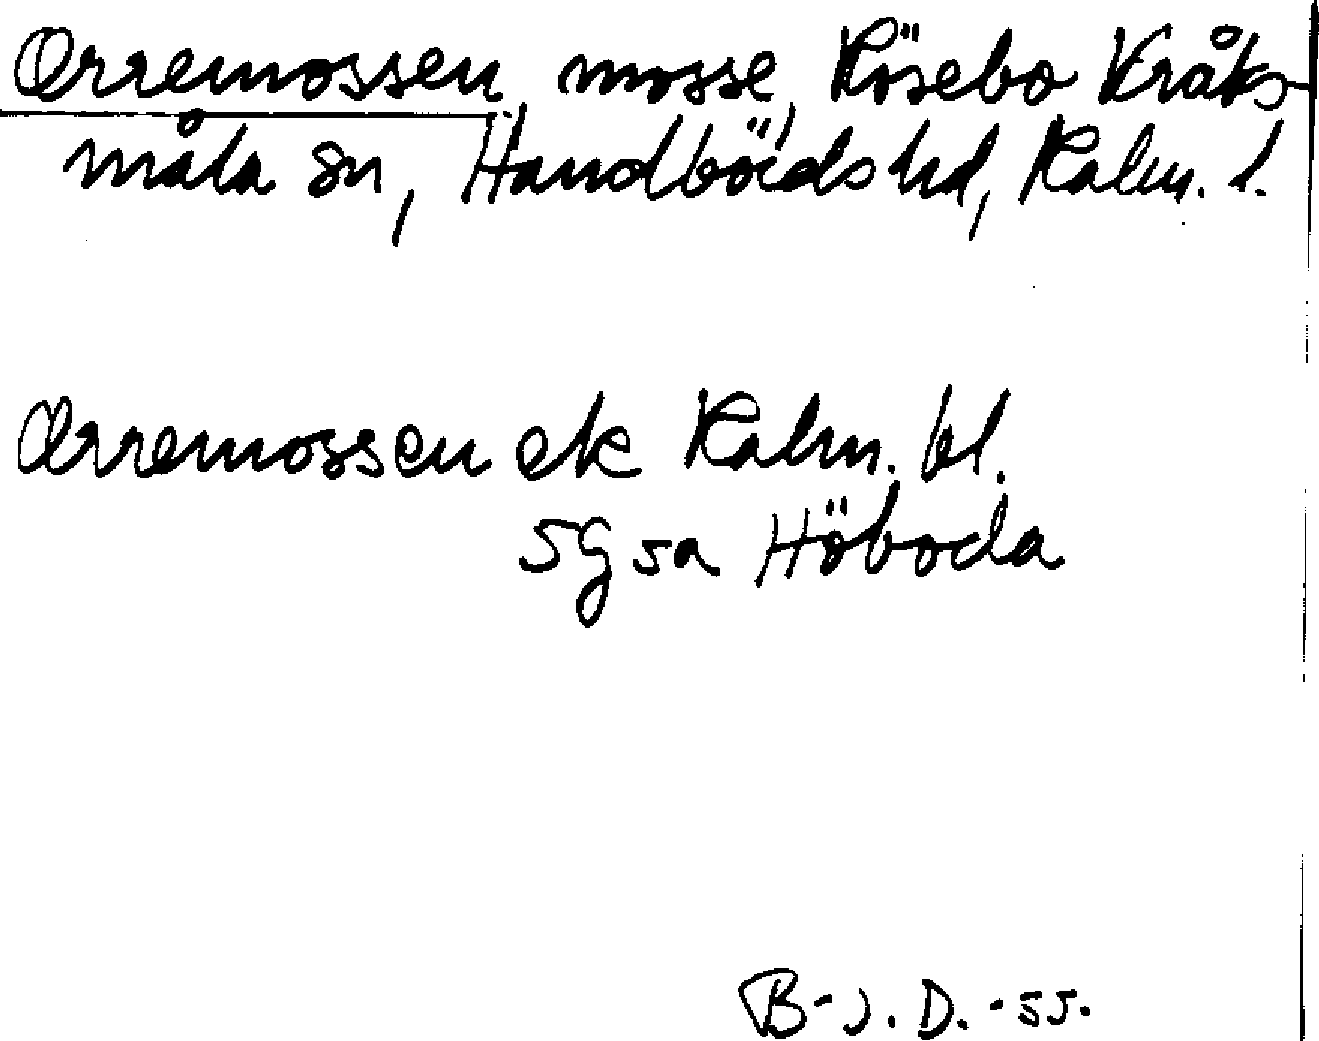 Orremossen, mosse, Rösebo Kråks-
måla sn, Handbörds hd, Kalm. l.
Orremossen ek Kalm. bl.
5g sa Höboda
B-J. D. -55.